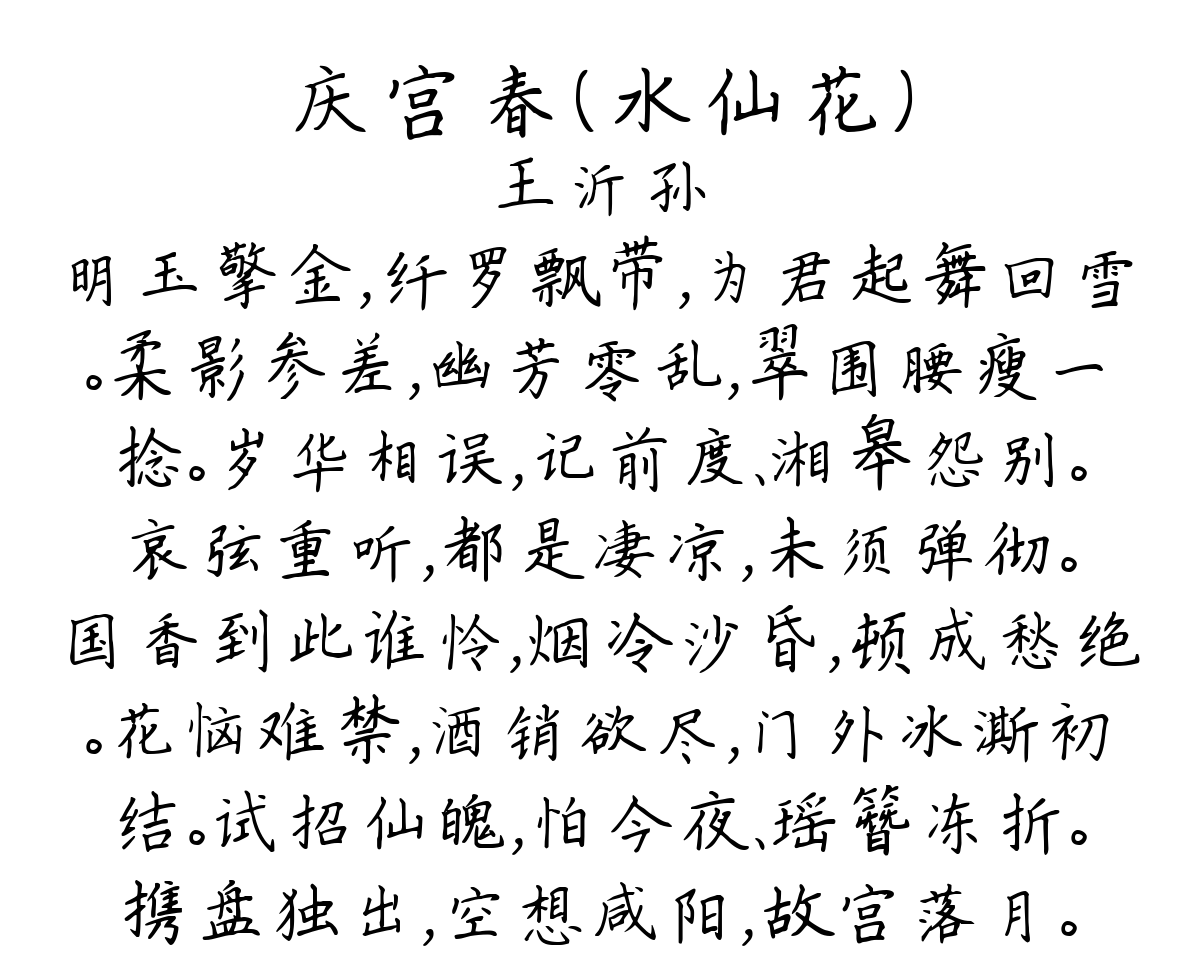 庆宫春(水仙花)
王沂孙
明玉擎金,纤罗飘带,为君起舞回雪
。柔影参差,幽芳零乱,翠围腰瘦一
捻。岁华相误,记前度、湘皋怨别。
哀弦重听,都是凄凉,未须弹彻。
国香到此谁怜,烟冷沙昏,顿成愁绝
。花恼难禁,酒销欲尽,门外冰澌初
结。试招仙魄,怕今夜、瑶簪冻折。
携盘独出,空想咸阳,故宫落月。